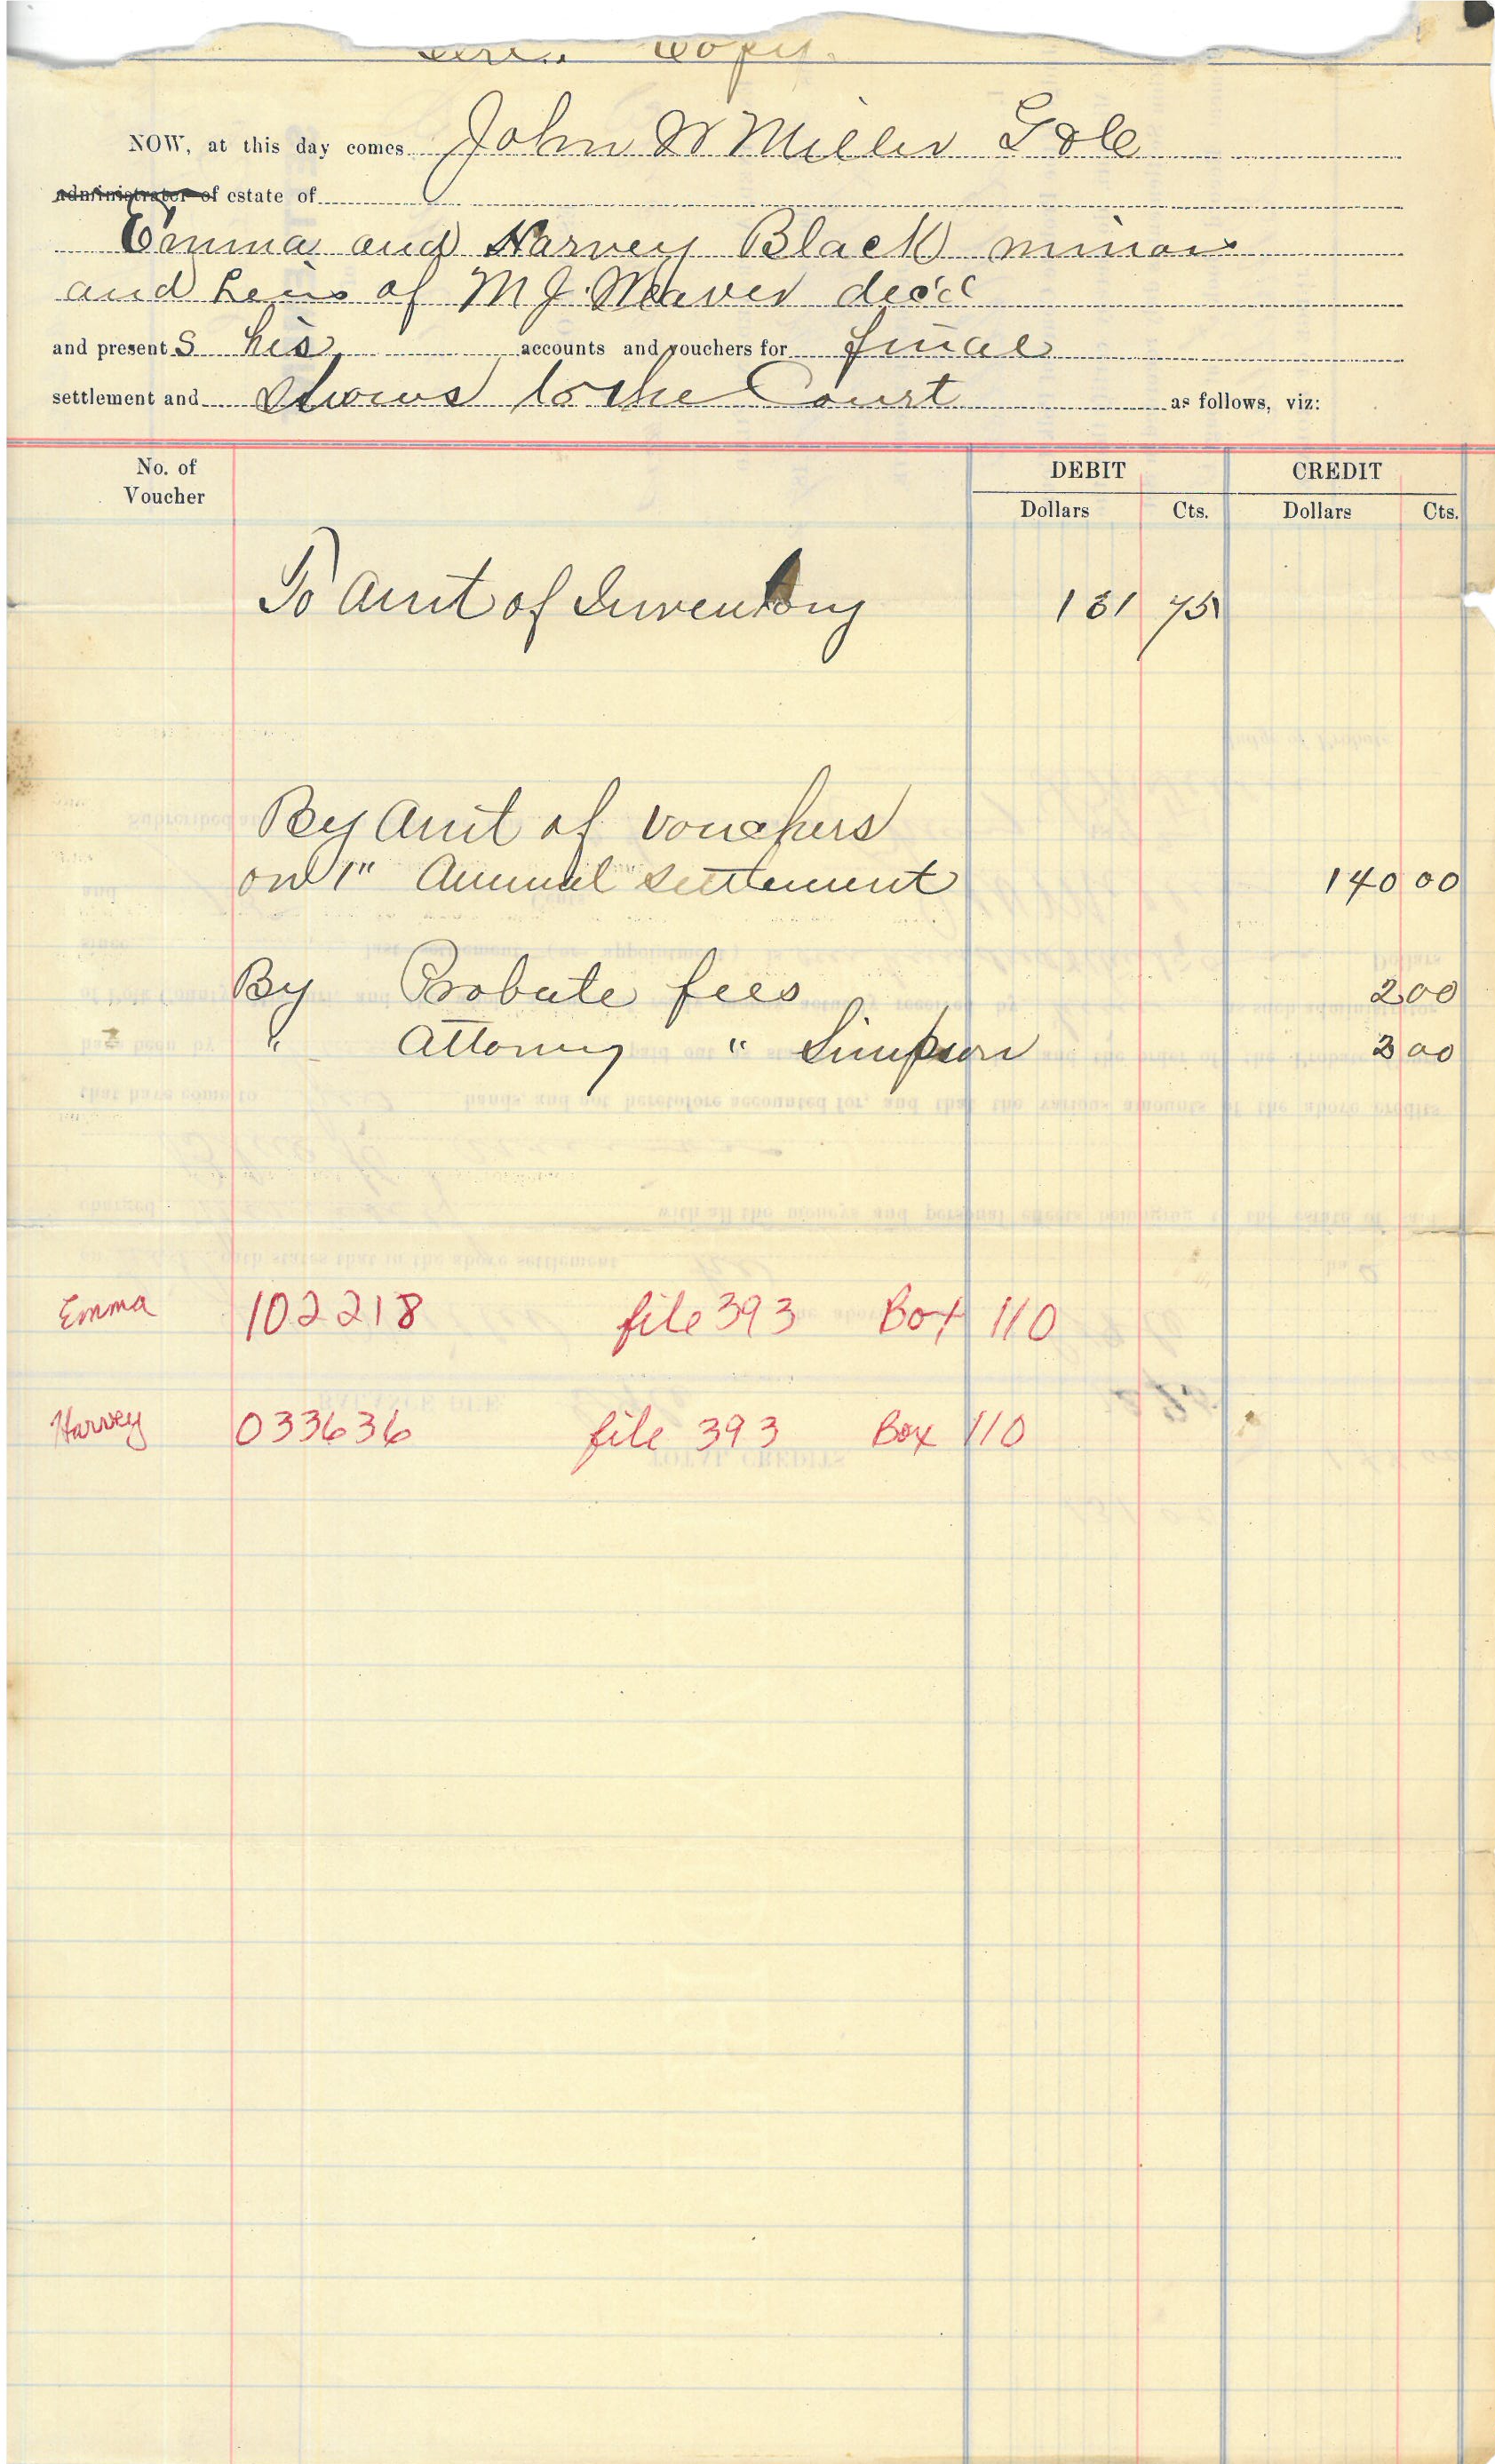 Copy.
NOW, at this day comes John W Miller G & C
administrator of estate of
Emma and Harvey Black minors
and heirs of M J. Weaver dec'd
and present s his accounts and vouchers for final
settlement and shows to the Court as follows, viz:
No. of Voucher DEBIT CREDIT
Dollars Cts. Dollars Cts.
To Amt of Inventory 131 75
By Amt of Vouchers
on 1" Annual Settlement 140 00
By Probate fees 2 00
" Attorney " Simpson 3 00
Emma 102218 file 393 Box 110
Harvey 033636 file 393 Box 110